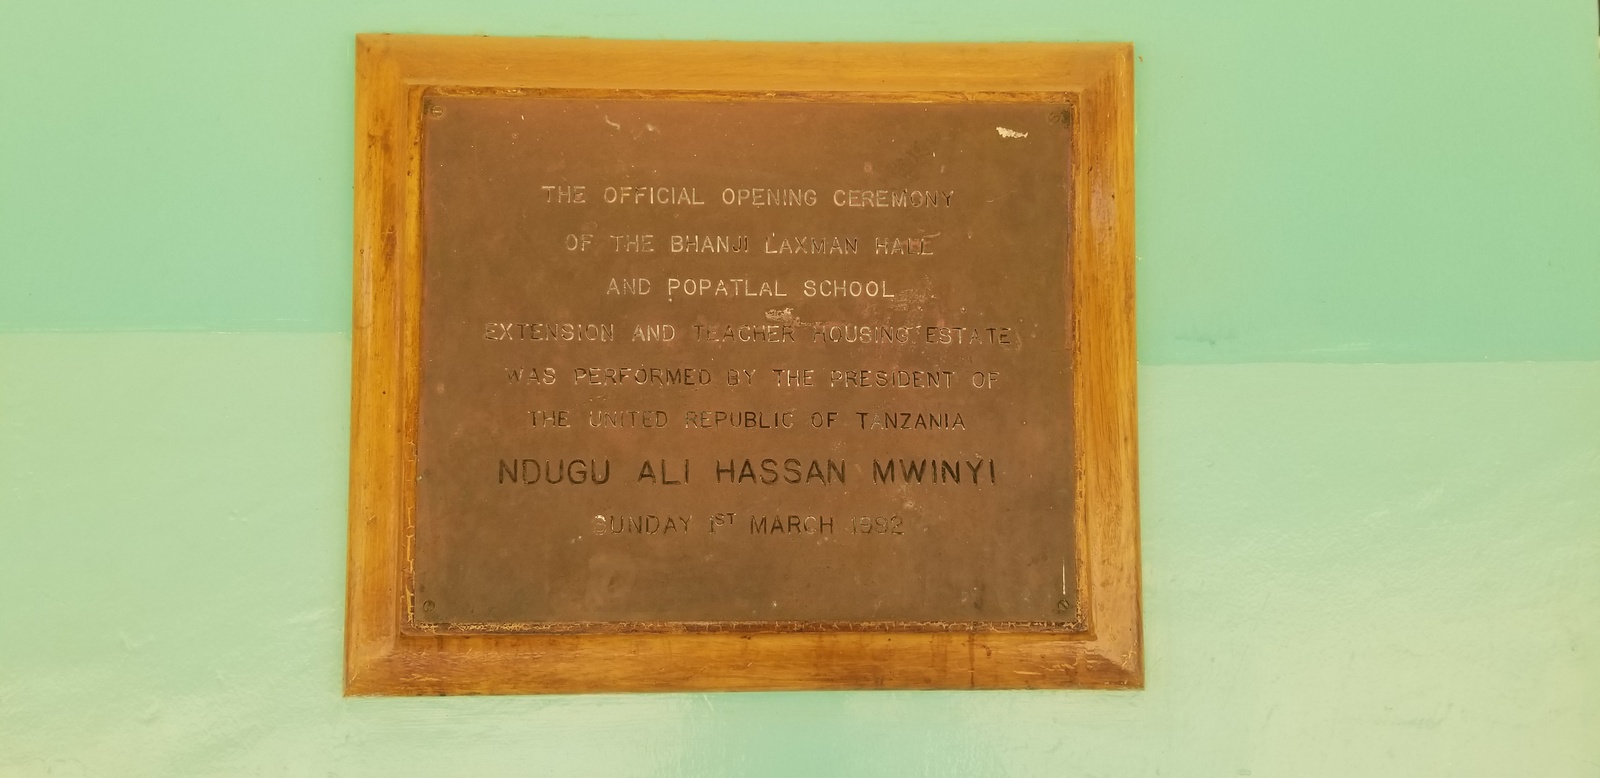 THE OFFICIAL OPENING CEREMONY
OF THE BHANJI LAXMAN HALL
AND POPATLAL SCHOOL
EXTENSION AND TEACHER HOUSING ESTATE
WAS PERFORMED BY THE PRESIDENT OF
THE UNITED REPUBLIC OF TANZANIA
NDUGU ALI HASSAN MWINYI
SUNDAY 1ST MARCH 1992